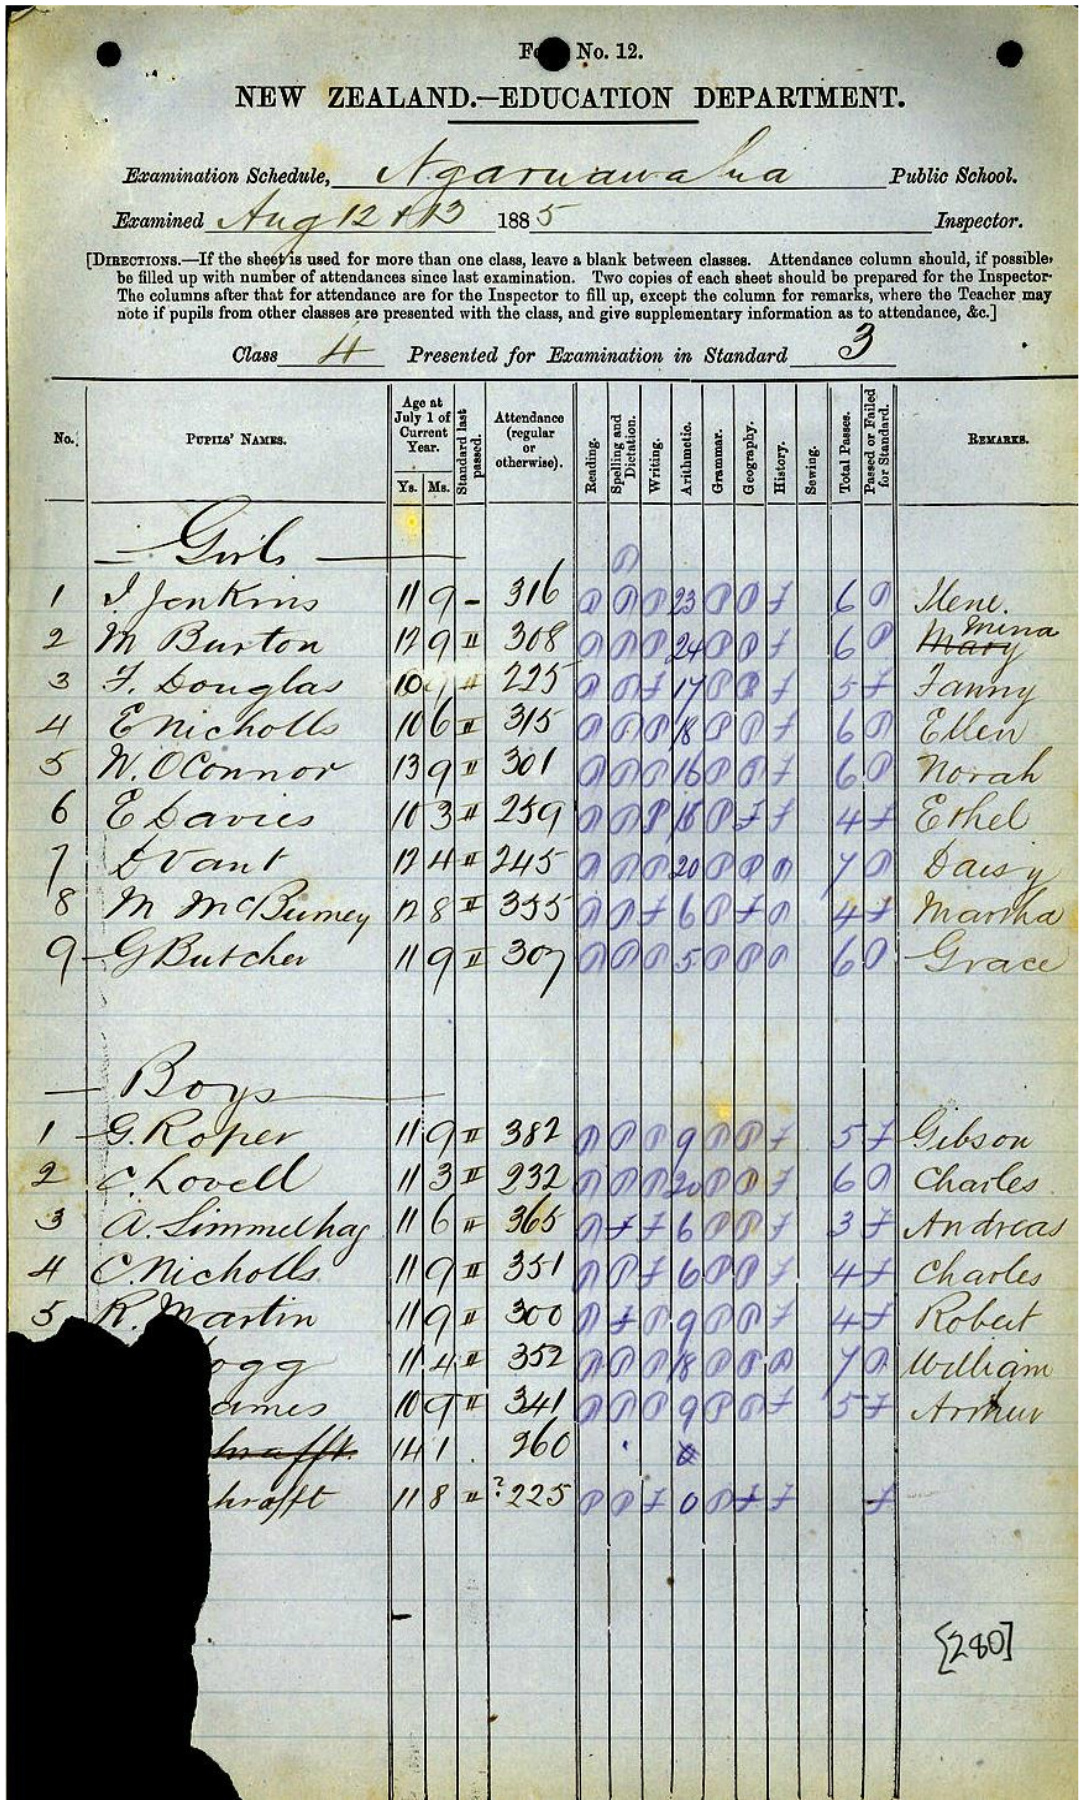 No. 12.
NEW ZEALAND.—EDUCATION DEPARTMENT.
Examination Schedule, Ngaruawahia Public School.
Examined Aug 12 & 13 1885 Inspector.
[DIRECTIONS.—If the sheet is used for more than one class, leave a blank between classes. Attendance column should, if possible,
be filled up with number of attendances since last examination. Two copies of each sheet should be prepared for the Inspector.
The columns after that for attendance are for the Inspector to fill up, except the column for remarks, where the Teacher may
note if pupils from other classes are presented with the class, and give supplementary information as to attendance, &c.]
Class 4 Presented for Examination in Standard 3
No. PUPILS' NAMES. Age at July 1 of Current Year. Ys. Ms. Standard last passed. Attendance (regular or otherwise). Reading. Spelling and Dictation. Writing. Arithmetic. Grammar. Geography. History. Sewing. Total Passes. Passed or Failed for Standard. REMARKS.
Girls
P
1 I Jenkins 11 9 - 316 P P P 23 P P F 6 P Ilene.
2 M Burton 12 9 II 308 P P P 24 P P F 6 P Mary Mina
3 F. Douglas 10 9 II 225 P P F 17 P P F 5 F Fanny
4 E Nicholls 10 6 II 315 P P P 18 P P F 6 P Ellen
5 N. OConnor 13 9 II 301 P P P 16 P P F 6 P Norah
6 E Davies 10 3 II 259 P P P 15 P F F 4 F Ethel
7 D Vant 12 4 II 245 P P P 20 P P P 7 P Daisy
8 M McBurney 12 8 II 355 P P F 6 P F P 4 F Martha
9 G Butcher 11 9 II 307 P P P 5 P P P 6 P Grace
Boys
1 G. Roper 11 9 II 382 P P P 9 P P F 5 F Gibson
2 C. Lovell 11 3 II 232 P P P 20 P P F 6 P Charles
3 A. Simmelhag 11 6 II 365 P F F 6 P P F 3 F Andreas
4 C. Nicholls 11 9 II 351 P P F 6 P P F 4 F Charles
5 R. Martin 11 9 II 300 P F P 9 P P F 4 F Robert
ogg 11 4 II 352 P P P 18 P P P 7 P William
ames 10 9 II 341 P P P 9 P P F 5 F Arthur
hrafft 14 1 . 260
hrafft 11 8 II ?225 P P F 0 P F F F
[280]